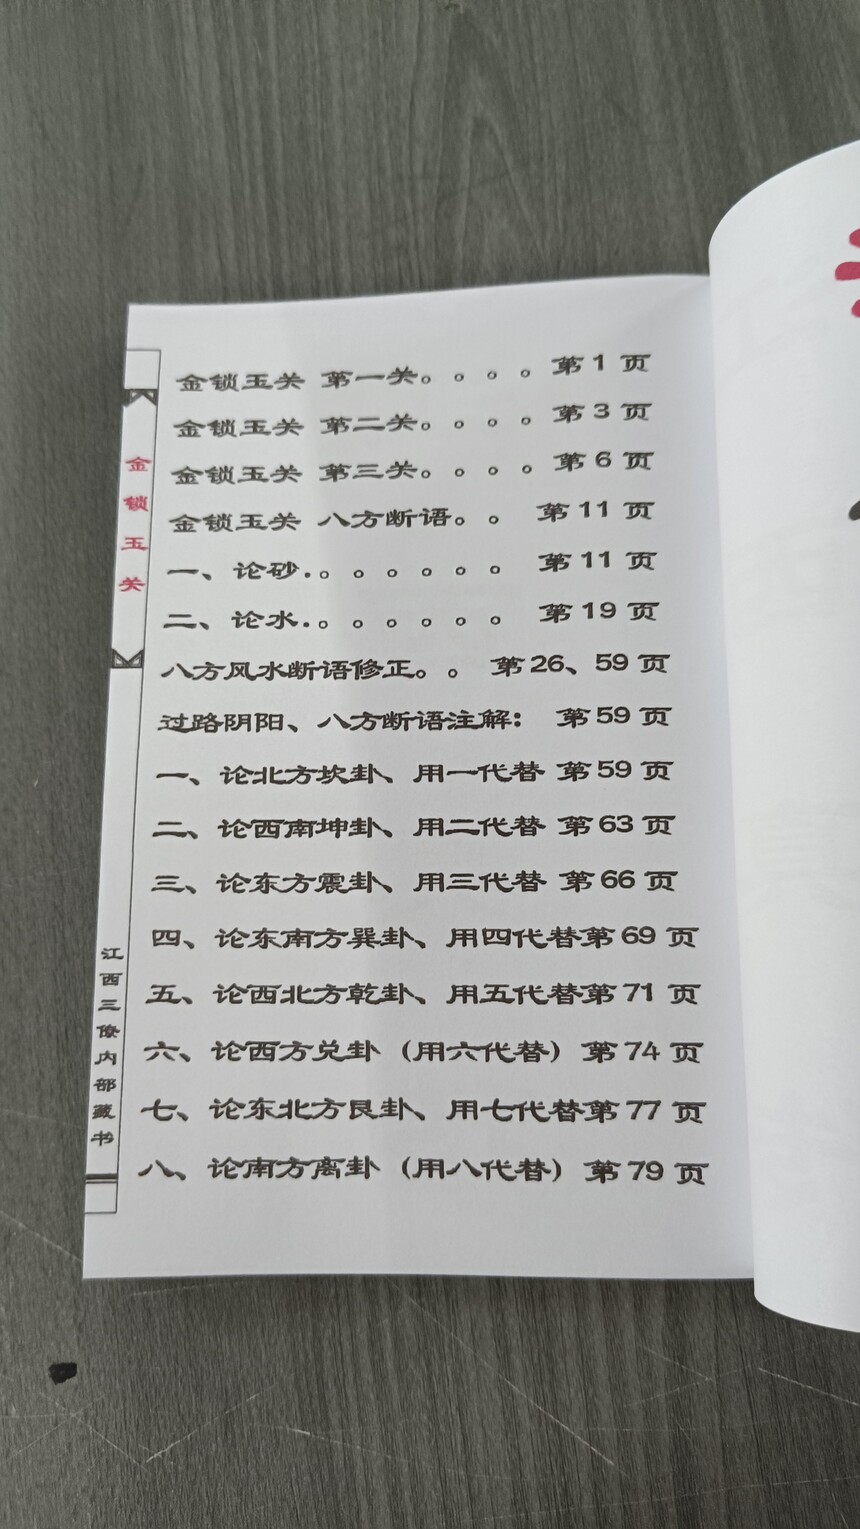 金锁玉关 第一关。。。。第1页
金锁玉关 第二关。。。。第3页
金锁玉关 第三关。。。。第6页
金锁玉关 八方断语。。 第11页
一、论砂.。。。。。。 第11页
二、论水.。。。。。。 第19页
八方风水断语修正。。 第26、59页
过路阴阳、八方断语注解： 第59页
一、论北方坎卦、用一代替 第59页
二、论西南坤卦、用二代替 第63页
三、论东方震卦、用三代替 第66页
四、论东南方巽卦、用四代替第69页
五、论西北方乾卦、用五代替第71页
六、论西方兑卦（用六代替）第74页
七、论东北方艮卦、用七代替第77页
八、论南方离卦（用八代替）第79页
金锁玉关
江西三僚内部藏书